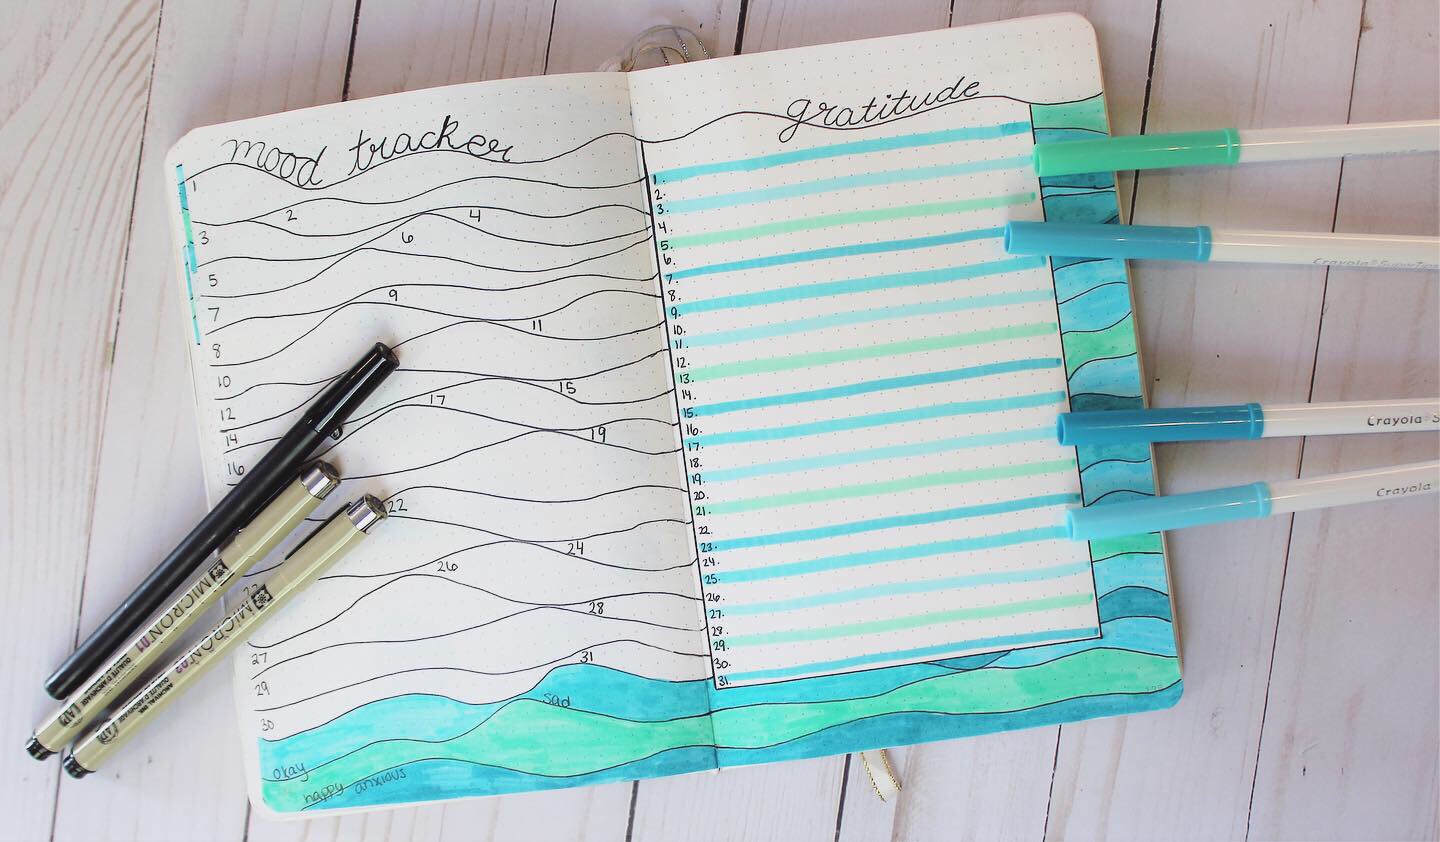 mood tracker
1
2
4
3
6
5
9
7
11
8
10
15
12
17
14
19
16
22
24
26
28
27
31
29
30
sad
okay
happy anxious
gratitude
1.
2.
3.
4.
5.
6.
7.
8.
9.
10.
11.
12.
13.
14.
15.
16.
17.
18.
19.
20.
21.
22.
23.
24.
25.
26.
27.
28.
29.
30.
31.
MICRON 01
QUALITÉ D'ARCHIVAGE
MICRON
ARCHIVAL INK
QUALITÉ D'ARCHIVAGE
Crayola
Crayola
Crayola